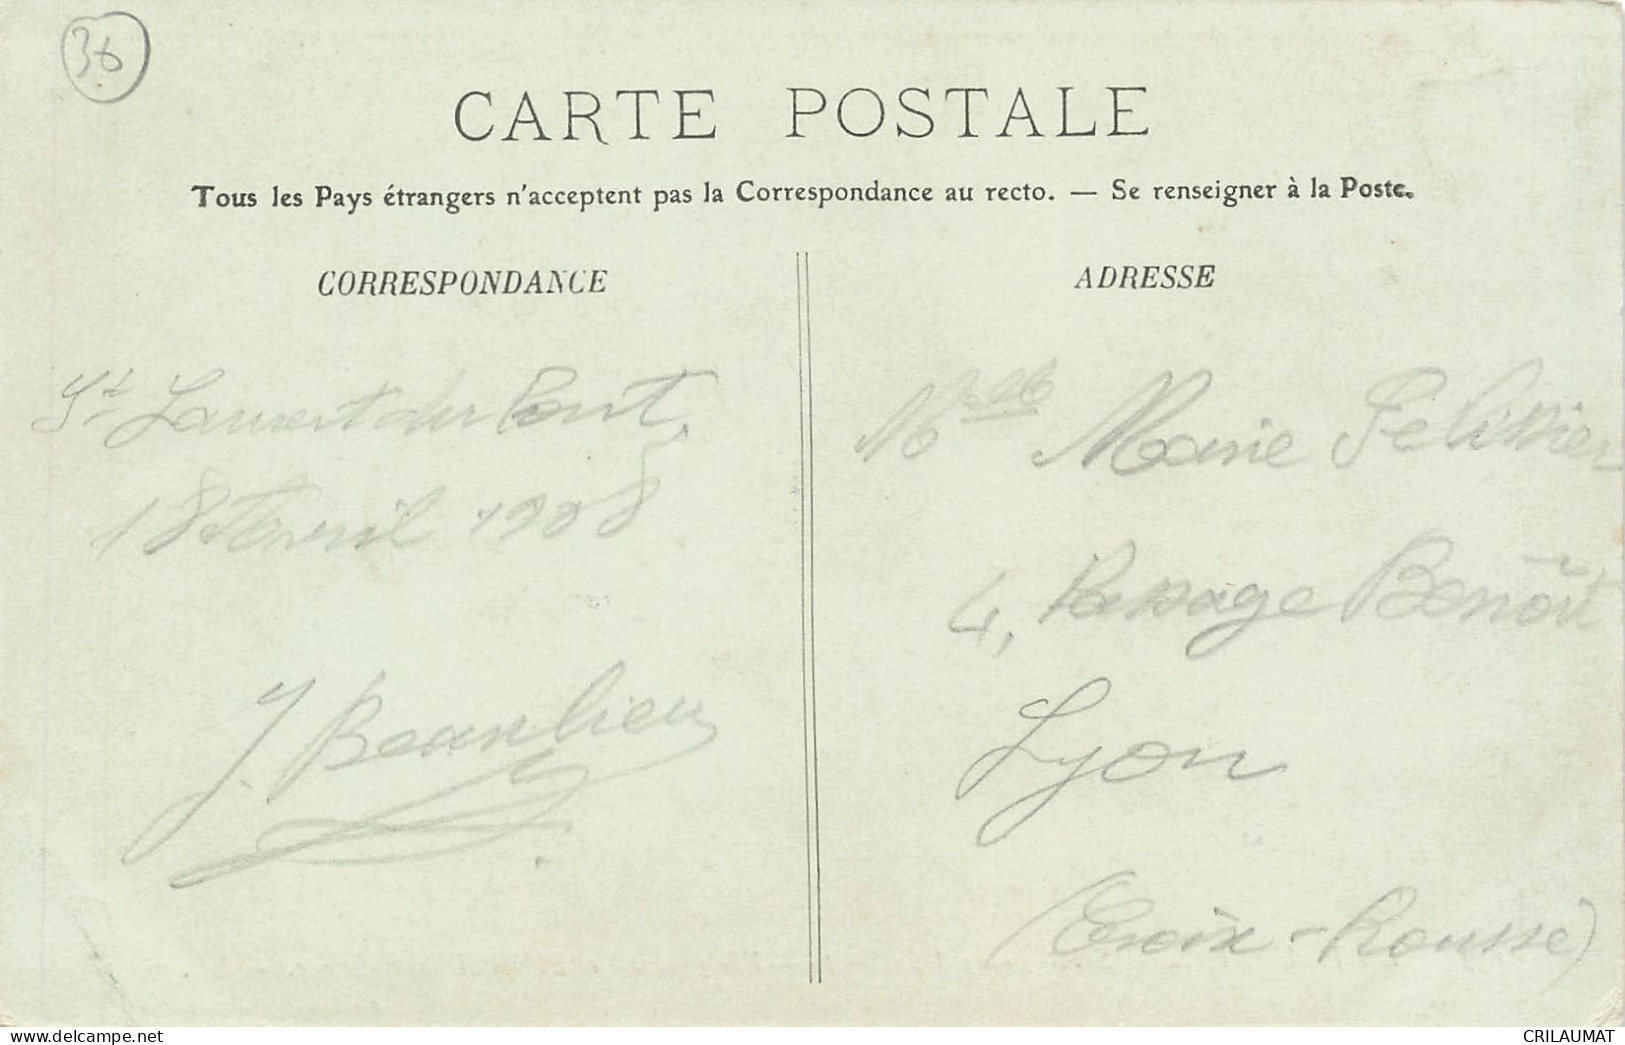 36
CARTE POSTALE
Tous les Pays étrangers n'acceptent pas la Correspondance au recto. — Se renseigner à la Poste.
CORRESPONDANCE
St Laurent du Pont,
18 Avril 1908
J. Beaulieu
ADRESSE
Melle Marie Pelissier
4, Passage Benoît
Lyon
(Croix-Rousse)
www.delcampe.net
CRILAUMAT